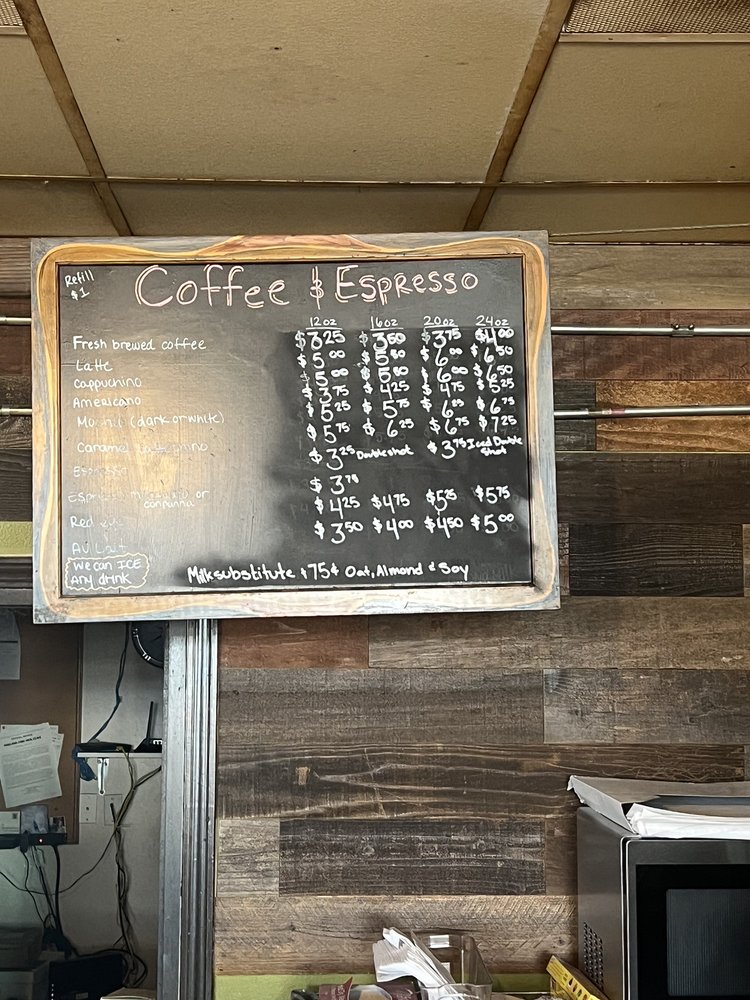 Refill
$1
Coffee & Espresso
12oz 16oz 20oz 24oz
Fresh brewed coffee $3.25 $3.50 $3.75 $4.00
Latte $5.00 $5.50 $6.00 $6.50
Cappuchino $5.00 $5.50 $6.00 $6.50
Americano $3.75 $4.25 $4.75 $5.25
Mocha (dark or white) $5.25 $5.75 $6.25 $6.75
Caramel $5.75 $6.25 $6.75 $7.25
Espresso $3.25 Double shot $3.75 Iced Double
shot
Espresso or $3.75
conpanna
Red eye $4.25 $4.75 $5.25 $5.75
AU Lait $3.50 $4.00 $4.50 $5.00
We can ICE
Any drink
Milk substitute +75¢ Oat, Almond & Soy